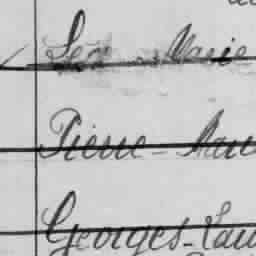 Léo - Marie
Pierre - Mau
Georges - Lau